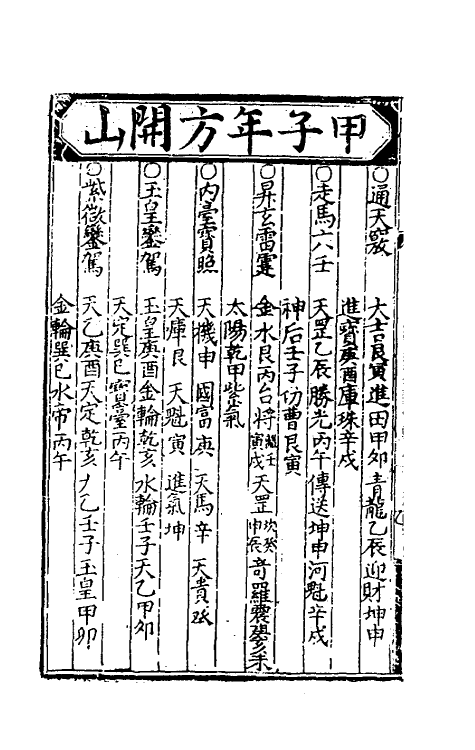 甲子年方開山
○通天竅　大吉艮寅進田甲卯青龍乙辰迎財坤申
進寶庚酉庫珠辛戌
○走馬六壬　天罡乙辰勝光丙午傳送坤申河魁辛戌
神后壬子功曹艮寅
○昇玄雷霆　金水艮丙台將寅戌天罡坎癸申辰奇羅震
太陽乾甲紫氣
○內臺寶照　天機申　國富庚　天馬辛　天貴
天庫艮　天魁寅　進氣坤
○玉皇鑾駕　玉皇庚酉金輪乾亥水輪壬子天乙甲卯
天定巽巳寶臺丙午
○紫微鑾駕　天乙庚酉天定乾亥太乙壬子玉皇甲卯
金輪巽巳水帝丙午